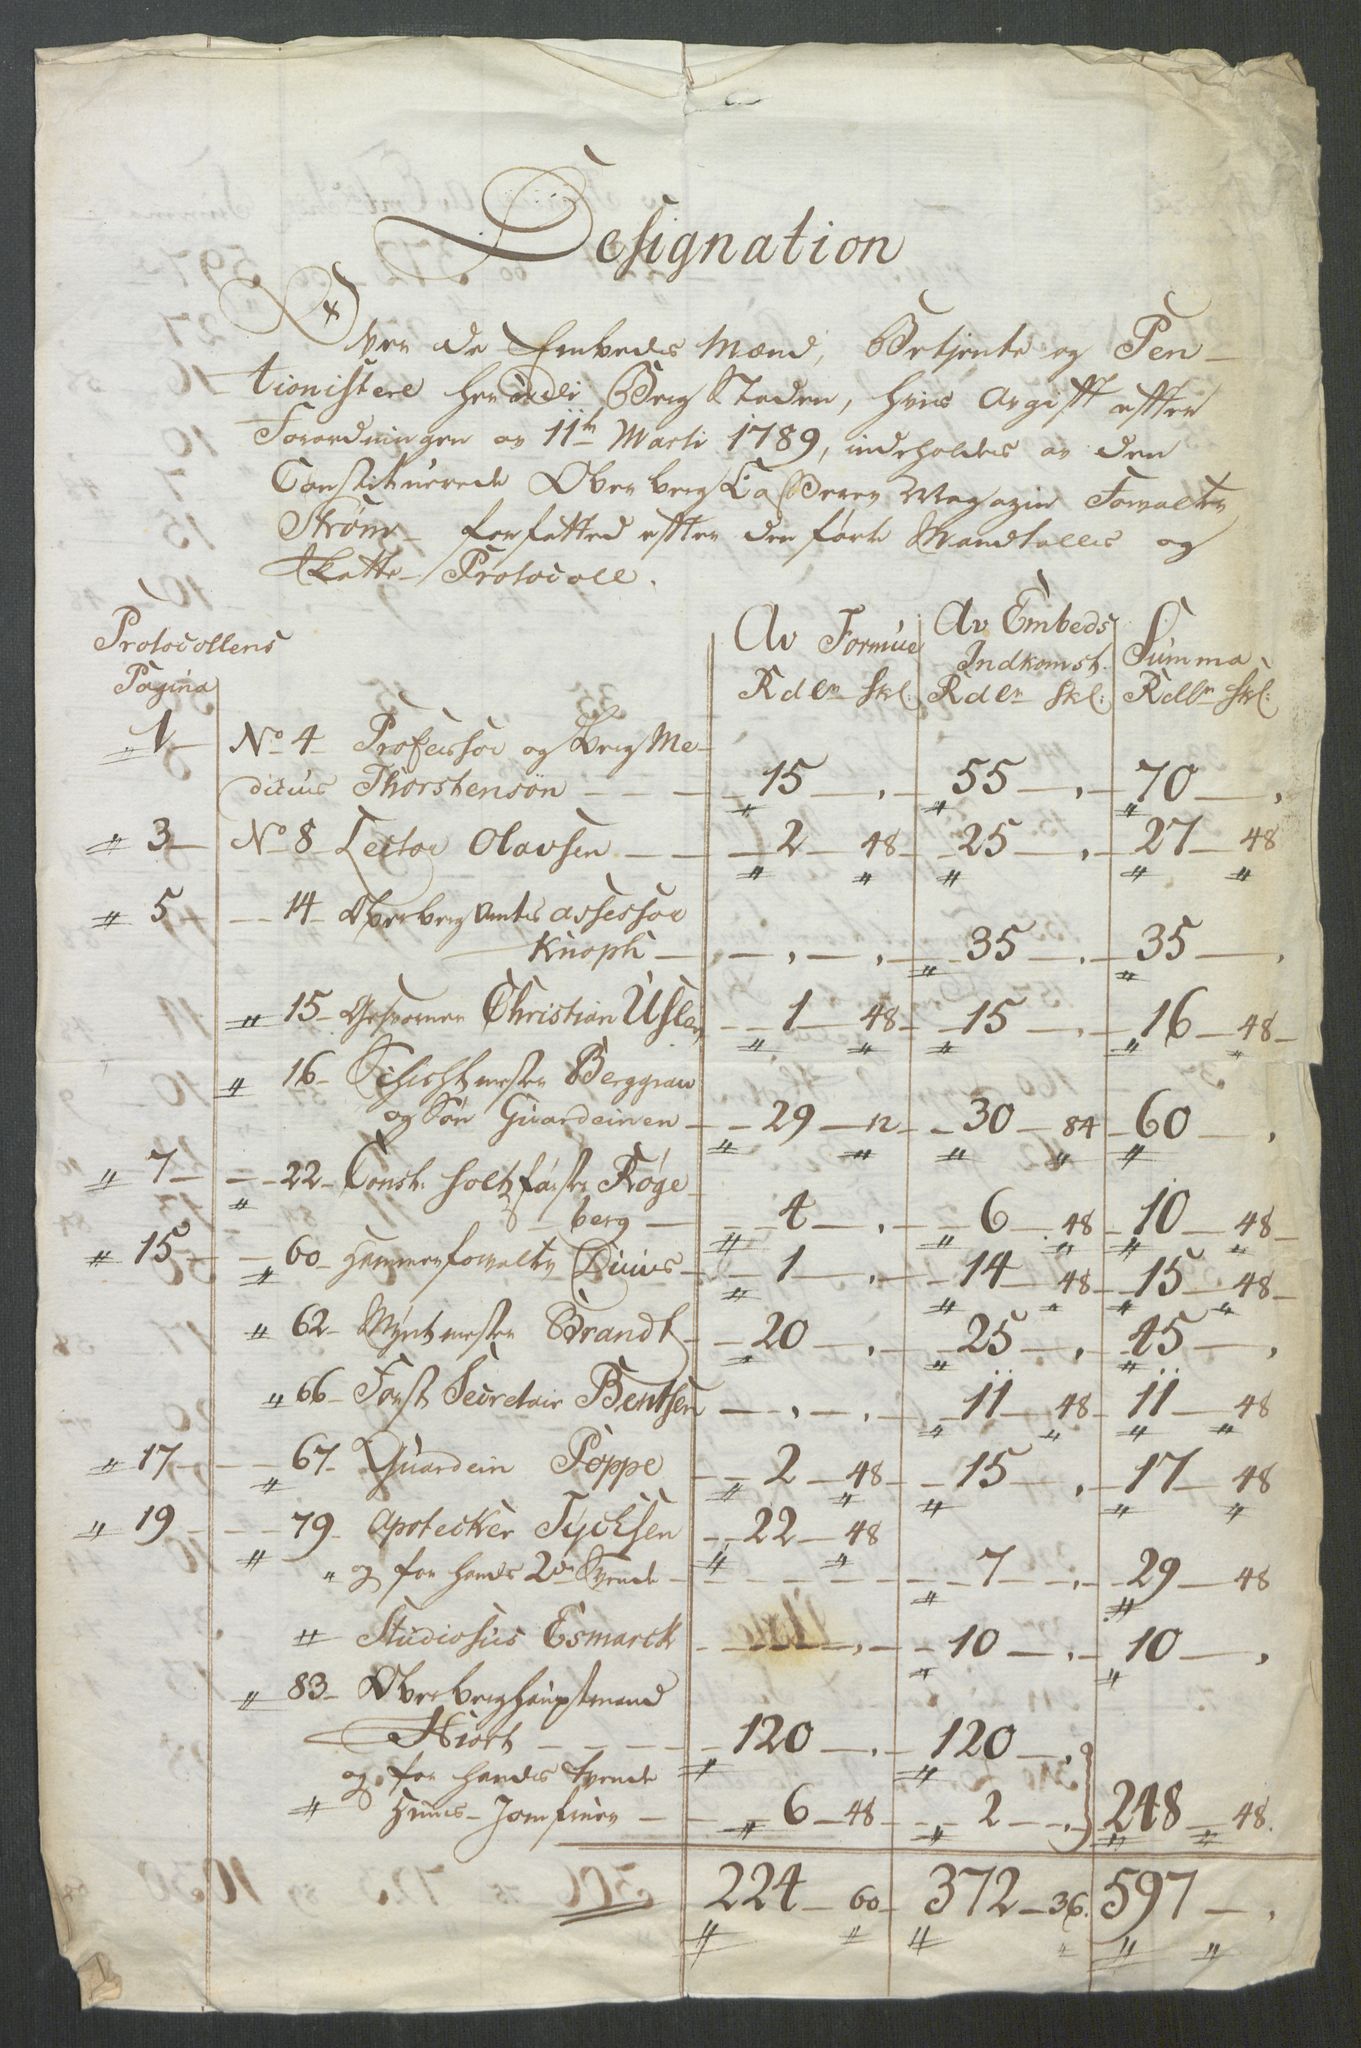 Designation
Over de Embeds Mænd, Betjente og Pen-
tionistere her ved Berg Staden, hvis Avgift efter
Forordningen av 11te Marti 1789, indeholdes av den
Constituerede Overberg Casserer Magazin Forvalter
Strøm - forfatted efter den førte Mandtalls og
Skatte-Protocoll.
Protocollens Pagina | Av Formue Rdlr Skl: | Av Embeds Indkomst. Rdlr Skl: | Summa Rdlr Skl:
" 1 - No 4 - Professor og Berg Me-
dicus Thorstensön - - - 15 - , - 55 - , - 70 - ,
" 3 - No 8 - Lector Olavsen - - 2 - 48 - 25 - , - 27 - 48
" 5 - - 14 - Overberg Amts assessor
Knoph - , - , - 35 - , - 35 - ,
" 15 - Geschworner Christian Usler - 1 - 48 - 15 - , - 16 - 48 -
" 16 - Schichtmester Berggrav
og Søn Guardeinen - 29 - 12 - 30 - 84 - 60 - ,
" 7 - - 22 - Const. Holtzførster Røge-
berg - 4 - , - 6 - 48 - 10 - 48 -
" 15 - - 60 - Hammerforvalter - 1 - , - 14 - 48 - 15 - 48 -
" 62 - Myntmester Brandt - 20 - , - 25 - , - 45 - ,
" 66 - Forst Secretair Bentsen - , - , - 11 - 48 - 11 - 48
" 17 - - 67 - Guardein Poppe - 2 - 48 - 15 - , - 17 - 48
" 19 - - 79 - Apotecker Tychsen - 22 - 48
" og for hands 2de Svende - - - 7 - , - 29 - 48
" Studiosus Esmarck - - - , - 10 - , - 10 - ,
" 83 - Overberghauptmand
Hiort - - - 120 - , - 120 - ,
og for handes tvende
" Huus-Jomfruer - - 6 - 48 - 2 - , - 248 - 48.
224 - 60 - 372 - 36. 597 - ,